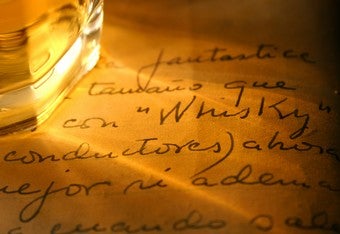 fantastice
tamaño que
con "Whisky"
conductores) ahora
mejor ni adema
cuando sal